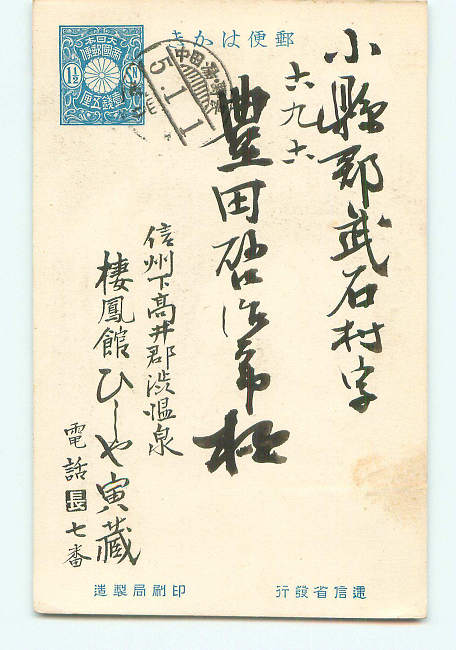 郵便はかき
大日本
帝國郵便
1½ SN
壹銭五厘
5.1.1
小縣郡武石村字
六九六
豊田啓治郎様
信州下高井郡渋温泉
棲鳳館ひしや寅藏
電話長七番
逓信省發行
印刷局製造